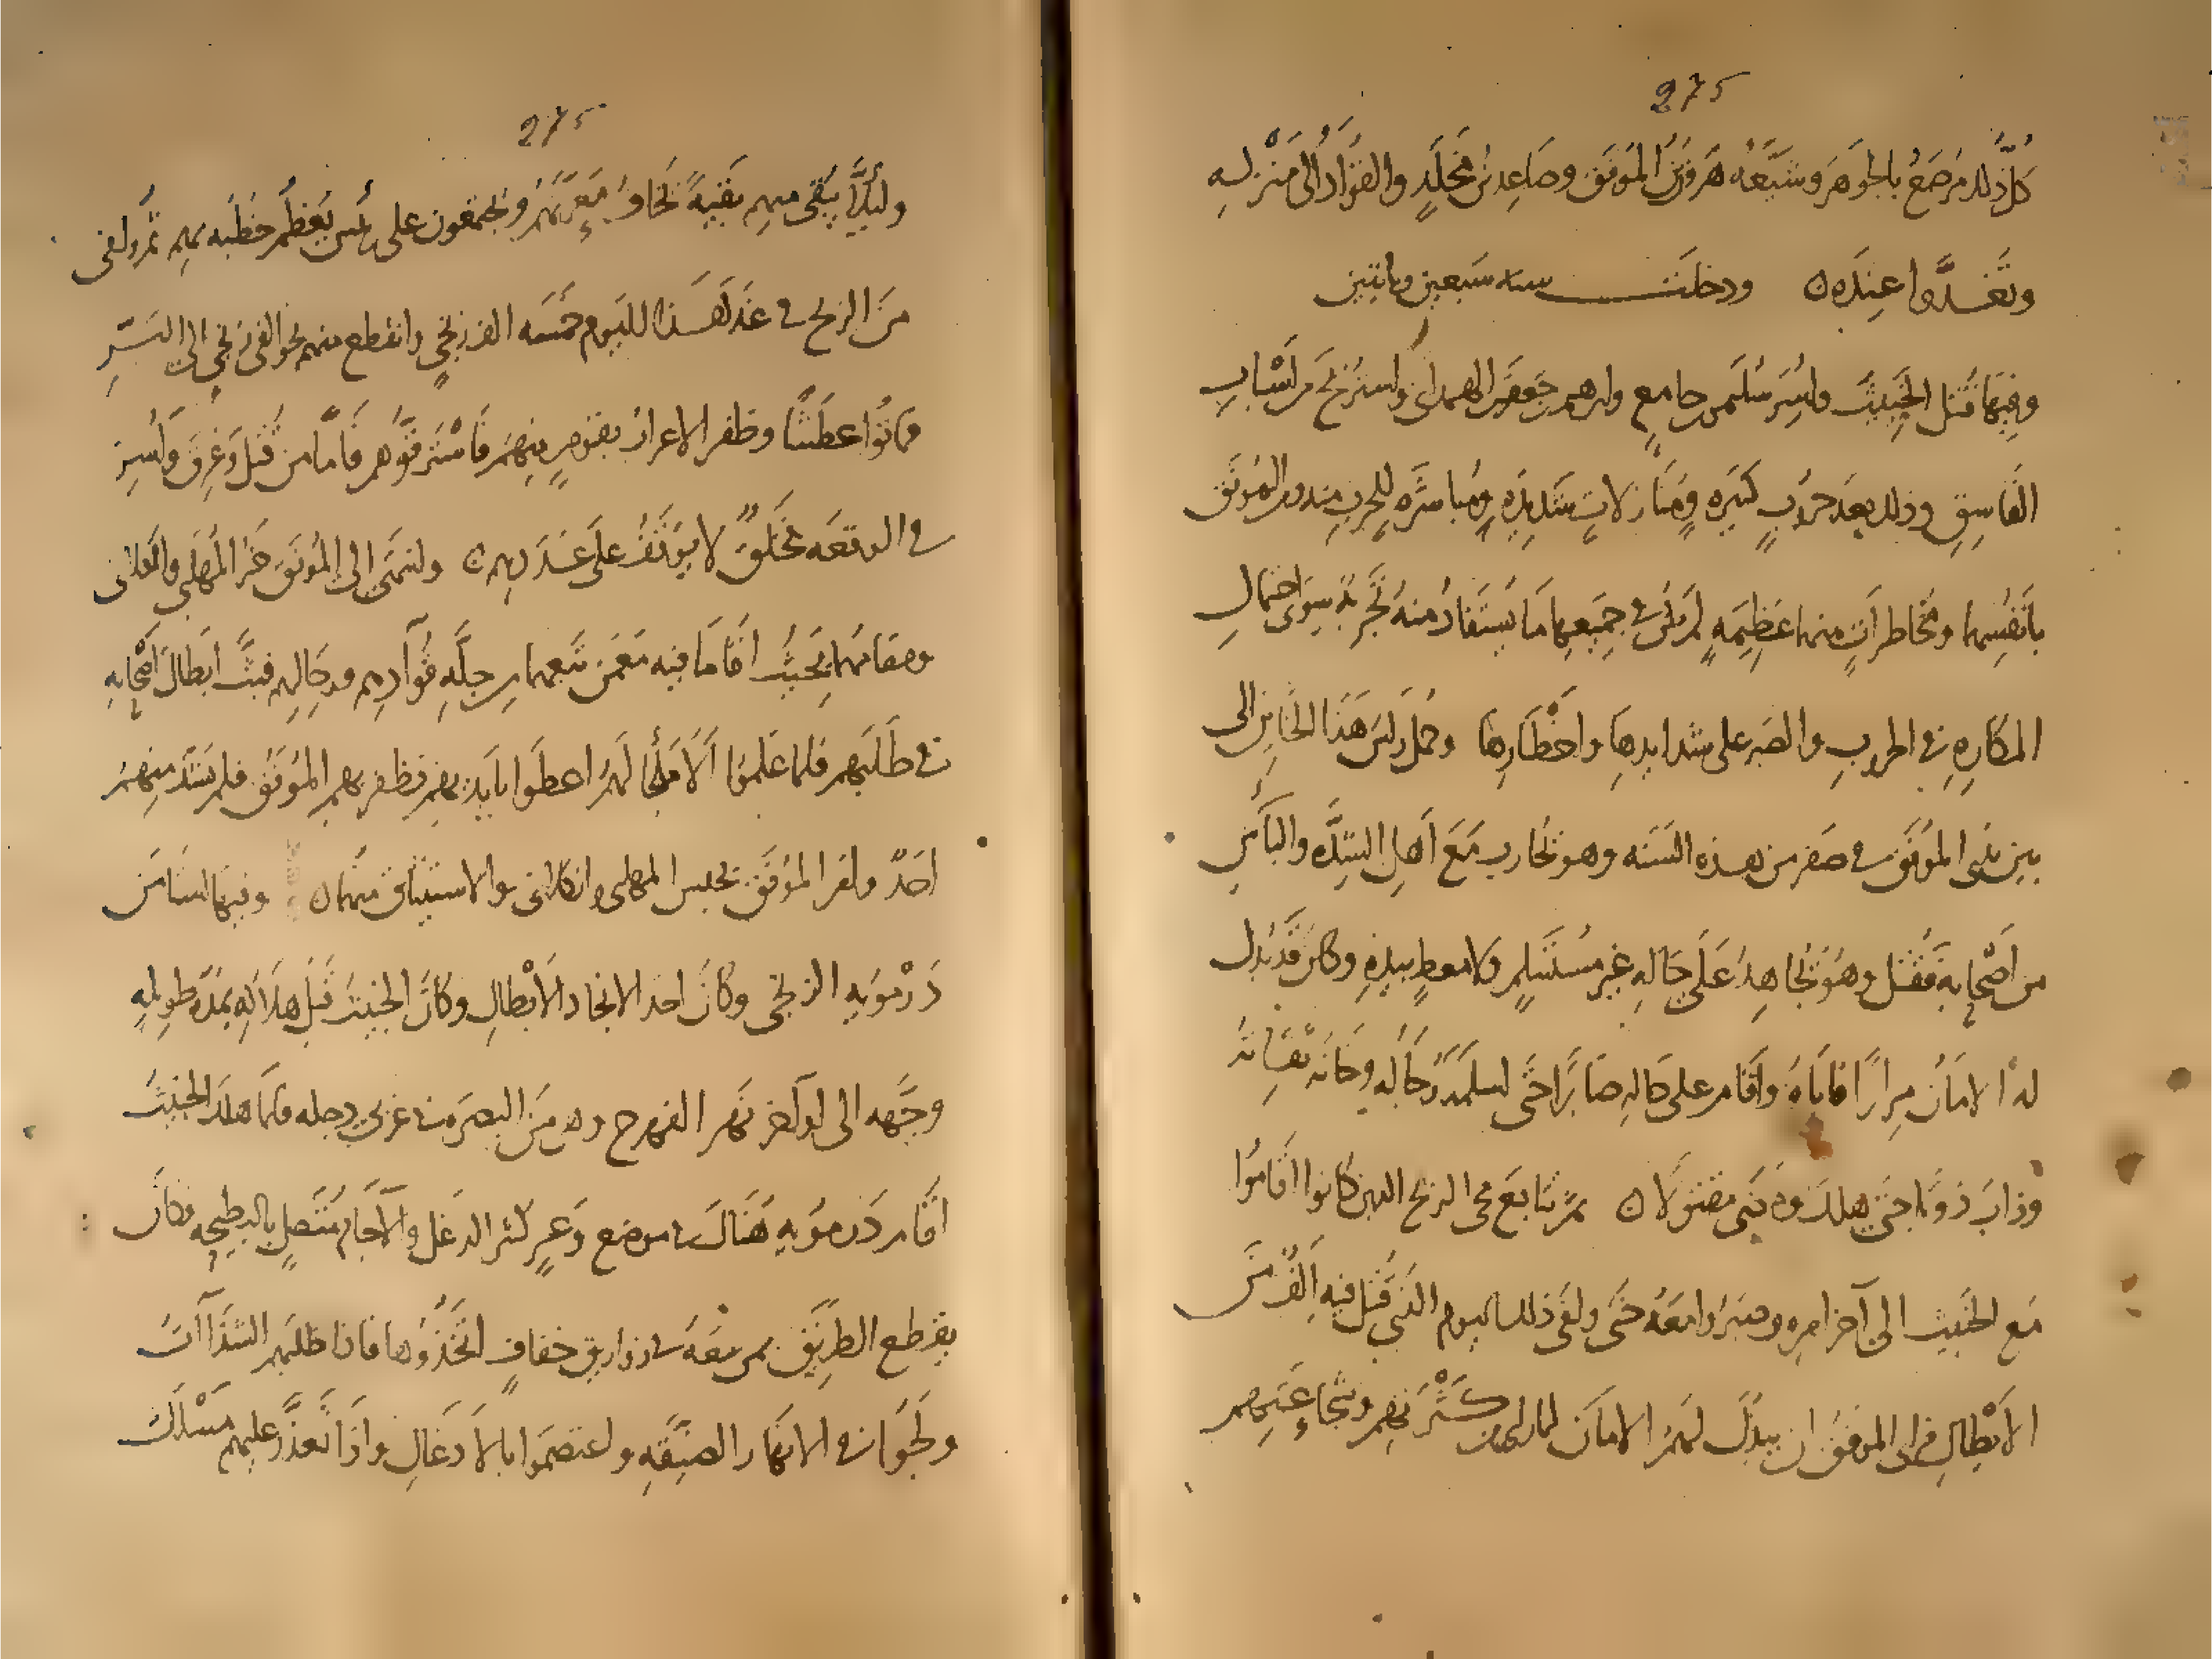 275
كل ذلك مرصع بالجوهر وشيّعه هرون بن الموفق وصاعد بن مخلد والقوّاد الى منزله
وتغدّوا عنده ودخلت سنه سبعين ومايتين
وفيها قتل الخبيث واسر سليمن بن جامع وابرهيم بن جعفر الهمداني واستريح من اسباب
الفاسق وذلك بعد حروب كثيره ومنازلات شديده ومباشره للحرب من الموفق
بانفسهما ومخاطرات منهما عظيمه لم يكن في جميعها ما يستفاد منه تجربة سوى احتمال
المكاره في الحروب والصبر على شدايدها واخطارها وحمل راس هذا الخاين الى
بين يدي الموفق في صفر من هذه السنه وهو يحارب مع اهل الشده والباس
من اصحابه فقتل وهو يجاهد على حاله غير مستسلم ولا معط بيده وكان قد بذل
له الامان مرارًا فاباه واقام على حاله صابرًا حتى اسلمه رجاله وخانه ثقاته
وذاب ذوبًا حتى هلك ومضى مقتولا ثم تتابع مجي الزنج الذين كانوا اقاموا
مع الخبيث الى آخر امره وصبروا معه حتى وافى ذلك اليوم الذي قتل فيه الف من
الابطال فراى الموفق ان يبذل لهم الامان لما راى من كثرتهم وشجاعتهم
275
وليلّا يبقى منهم بقيةً تخاف معرّتهم ويجتمعون على رئيس يعظم خطبه بهم ثم وافى
من الزنج في غد هذا اليوم خمسه الف زنجي وانقطع منهم نحو الف زنجي الى البرّ
فماتوا عطشًا وظفر الاعراب بقوم منهم فاسترقوهم فامّا من قتل وغرق واسر
في الوقعه فخلقٌ لا يوقف على عددهم وانتهى الى الموفق خبر المهلبي وانكلاى
ومقامهما بحيث اقاما فيه مع من تبعهما من جلّه قوّادهم ورجالهم فبثّ ابطال اصحابه
في طلبهم فلما علموا الا ملجأ لهم اعطوا بايديهم فظفر بهم الموفق فلم يشذ منهم
احدٌ وامر الموفق بحبس المهلبي وانكلاى والاستيثاق منهما وفيها استامن
درمويه الزنجي وكان احد الانجاد الابطال وكان الخبيث قبل هلاكه بمدّه طويله
وجّهه الى اواخر نهر الفهرج وهي من البصره في غربي دجله فلما هلك الخبيث
اقام درمويه هناك في موضع وعر كثير الدغل والآجام متصل بالبطيحه فكان
يقطع الطريق بمن معه في زواريق خفاف اتخذوها فاذا طلبهم الشذاآت
ولجوا في الانهار الضيّقه واعتصموا بالادغال واذا تعذّر عليهم مسلك